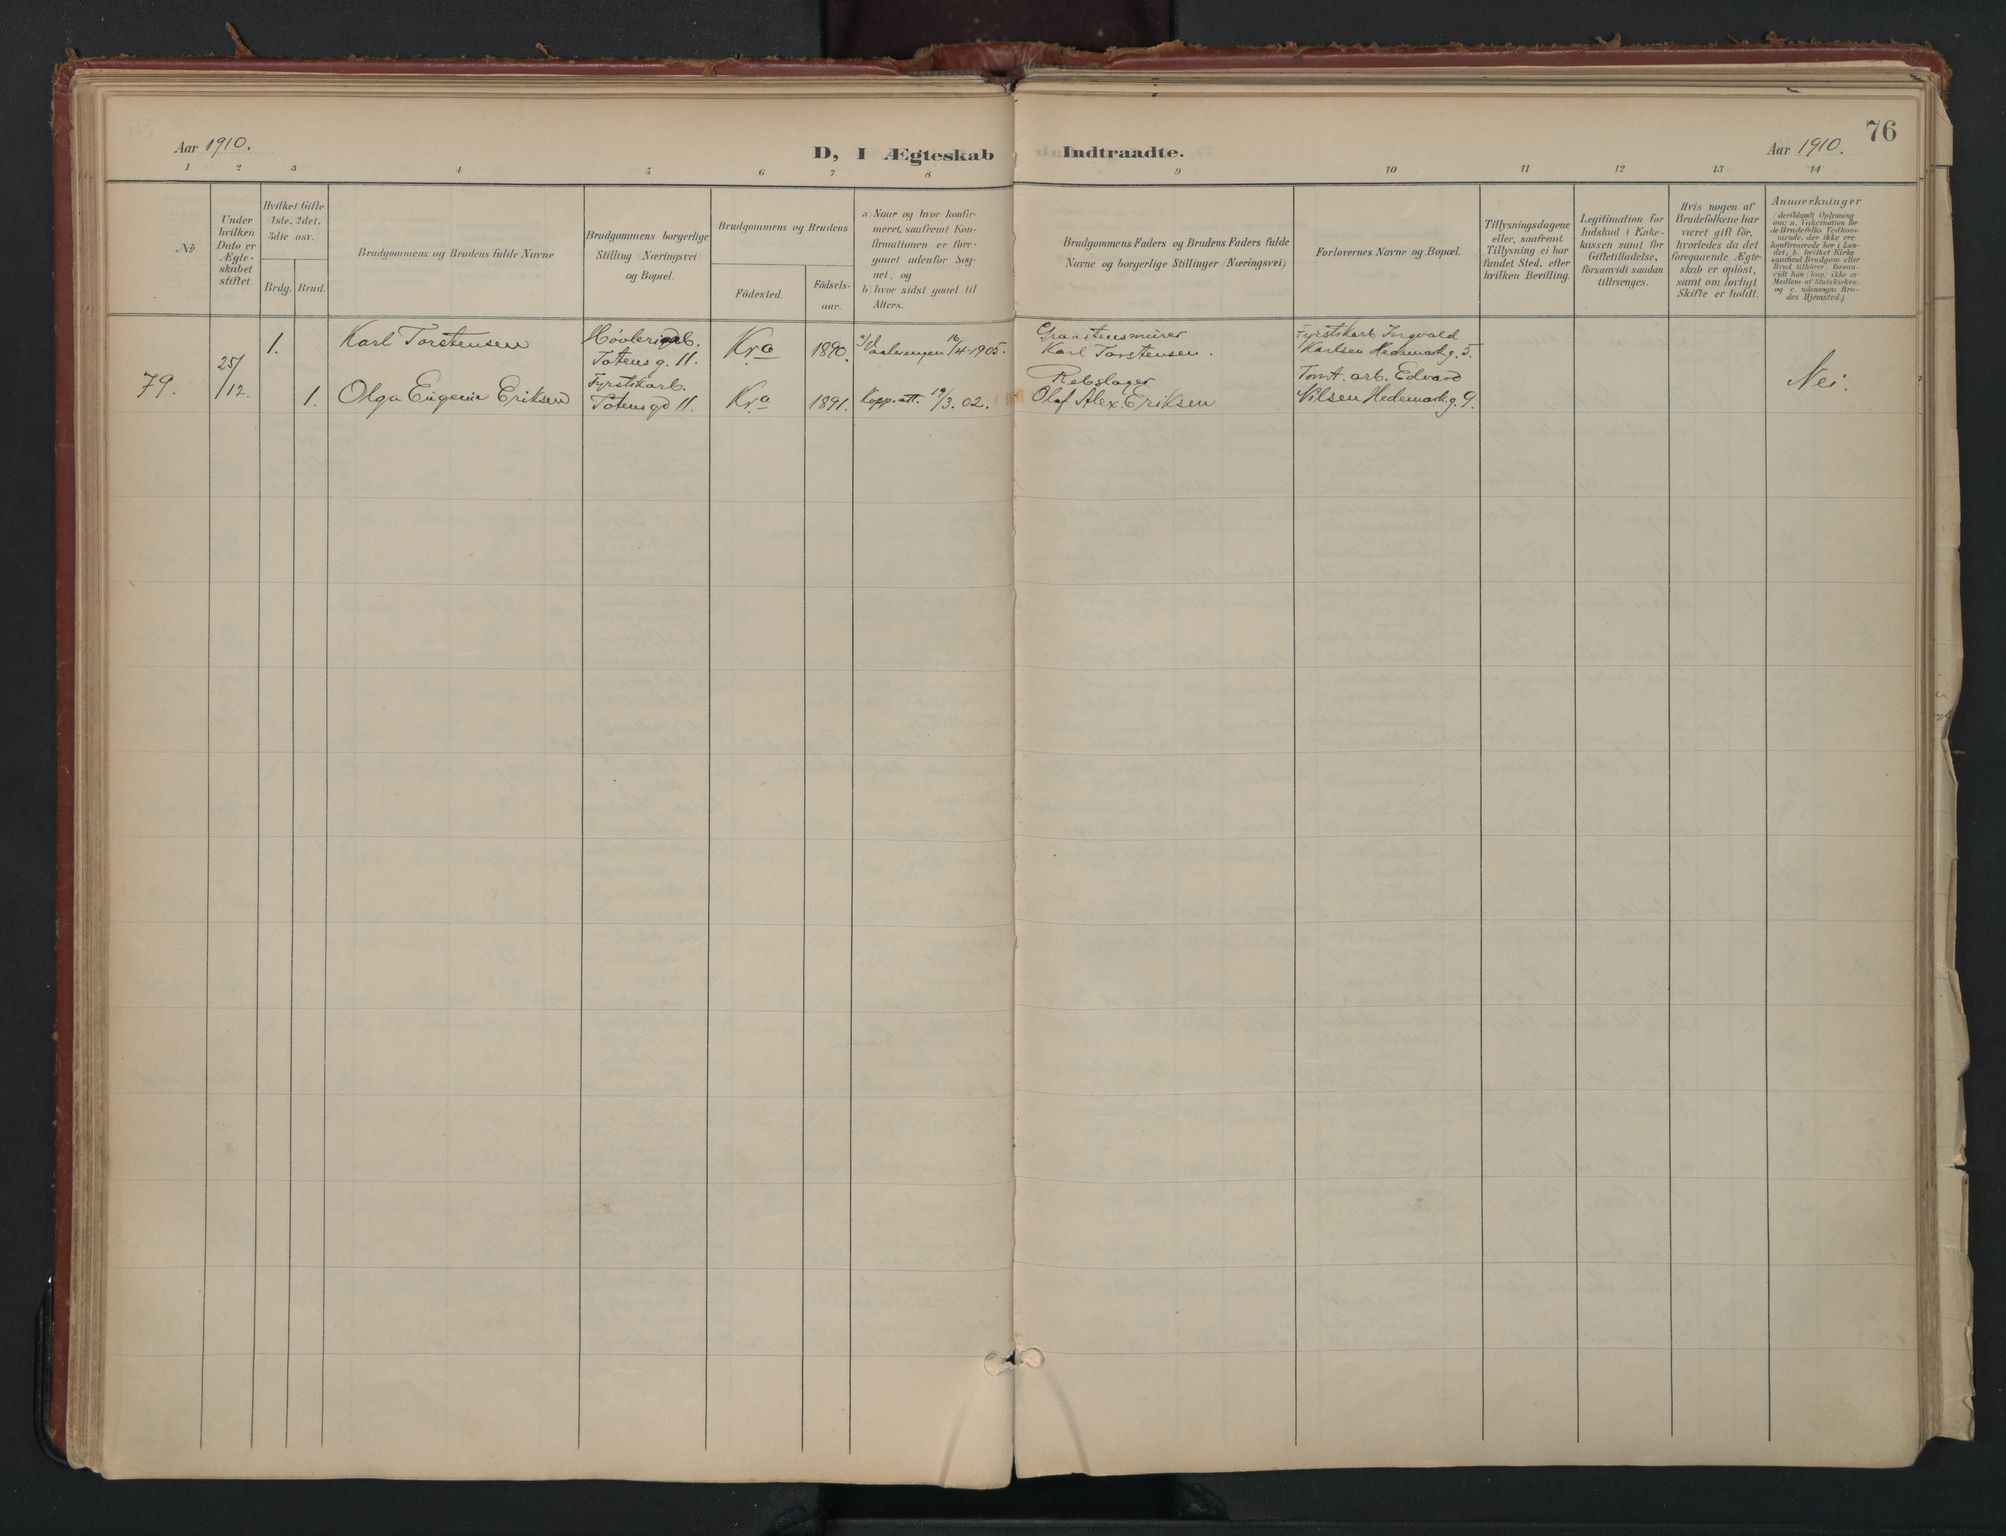 Aar 1910.
D, I Ægteskab Indtraadte.
Aar 1910.
76
1 2 3 4 5 6 7 8 9 10 11 12 13 14
No
Under
hvilken
Dato er
Ægte-
skabet
stiftet.
Hvilket Gifte
1ste, 2det,
3die osv.
Brdg. Brud.
Brudgommens og Brudens fulde Navne
Brudgommens borgerlige
Stilling (Næringsvei)
og Bopæl.
Brudgommens og Brudens
Födested.
Födsels-
aar.
a) Naar og hvor konfir-
meret, saafremt Kon-
firmationen er fore-
gaaet udenfor Sog-
net, og
b) hvor sidst gaaet til
Alters.
Brudgommens Faders og Brudens Faders fulde
Navne og borgerlige Stillinger (Næringsvei)
Forlovernes Navne og Bopæl.
Tillysningsdagene
eller, saafremt
Tillysning ei har
fundet Sted, efter
hvilken Bevilling.
Legitimation for
Indskud i Enke-
kassen samt for
Giftetilladelse,
forsaavidt saadan
tiltrænges.
Hvis nogen af
Brudefolkene har
været gift før,
hvorledes da det
foregaaende Ægte-
skab er oplöst,
samt om lovligt
Skifte er holdt.
Anmærkninger
(deriblandt Oplysning
om: a. Vakcination for
de Brudefolks Vedkom-
mende, der ikke ere
konfirmerede her i Lan-
det; b. hvilket Kirke-
samfund Brudgom eller
Brud tilhörer, forsaa-
vidt han (hun) ikke er
Medlem af Statskirken,
og c. udensogns Bru-
des Hjemsted.)
79. 25/12.
1. Karl Torstensen
Totensg. 11. Kra 1890. a/ Vaalerengen 16/4-1905.
Graastensmurer
Karl Torstensen.
Fyrstikarb. Ingvald
Karlsen Hedemarkg. 5.
1. Olga Eugenie Eriksen
Fyrstikarb.
Totensgd 11. Kra 1891. Kopp.att. 19/3. 02.
Rebslager
Olaf Alex. Eriksen
Tomt. arb. Edvard
Nilsen Hedemarkg. 9.
Nei.